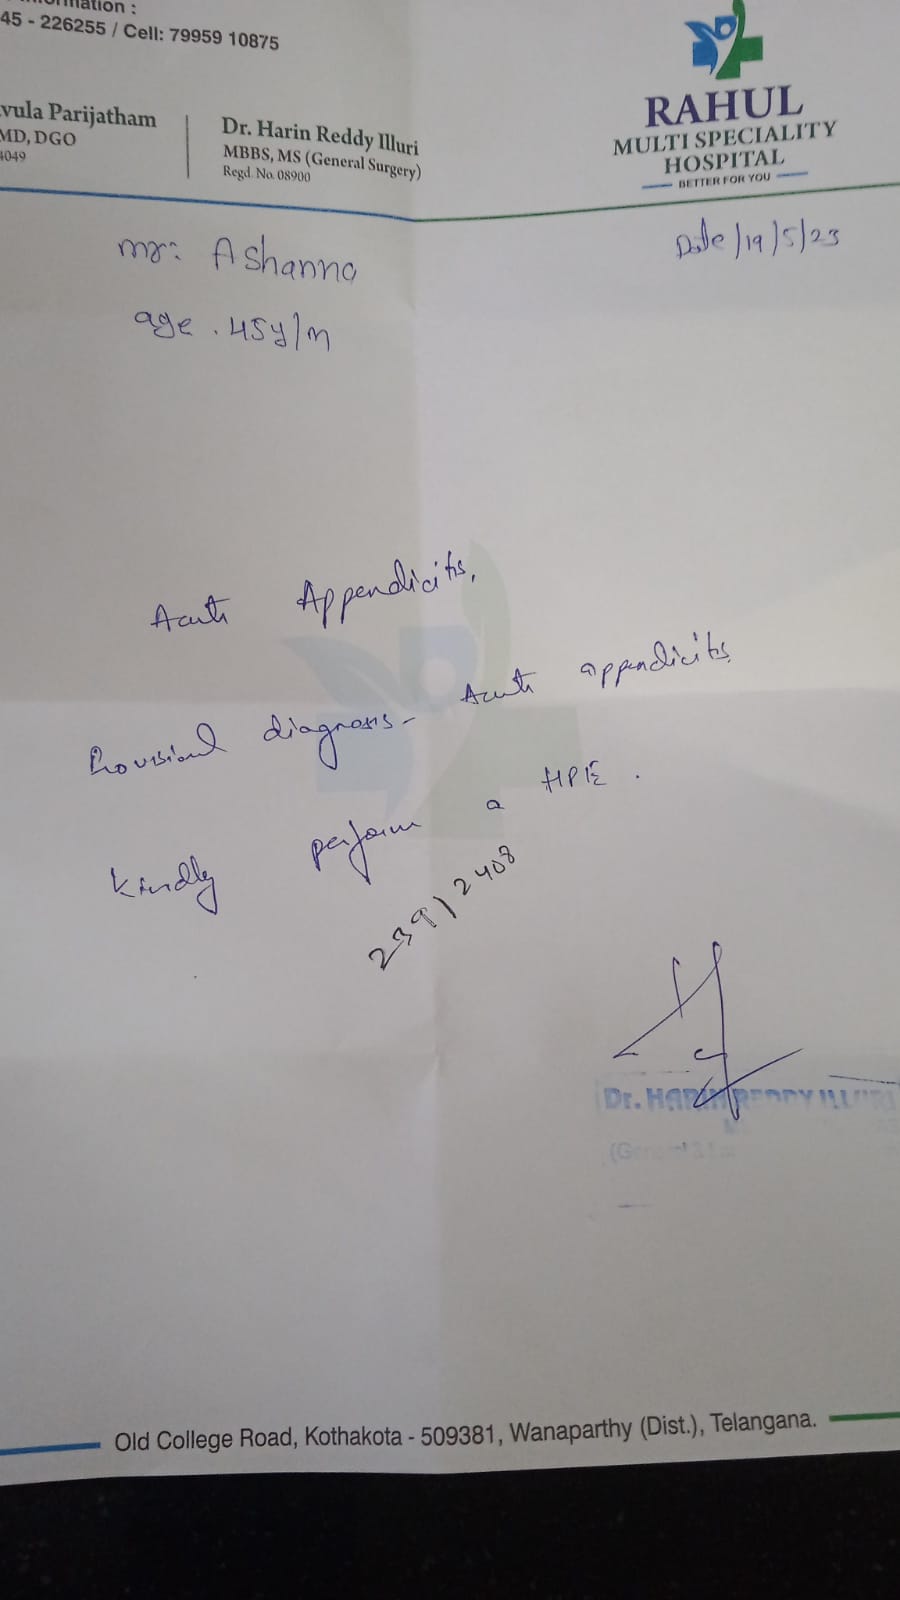 mation :
45 - 226255 / Cell: 79959 10875
RAHUL
MULTI SPECIALITY
HOSPITAL
BETTER FOR YOU
vula Parijatham
MD, DGO
4049
Dr. Harin Reddy Illuri
MBBS, MS (General Surgery)
Regd. No. 08900
mr: Ashanna
Date/19/5/23
age . 45y/m
Acute Appendicitis,
Provisional diagnosis - Acute appendicitis
Kindly perform a HPE .
239/2408
Dr. HARIN REDDY ILLURI
Old College Road, Kothakota - 509381, Wanaparthy (Dist.), Telangana.